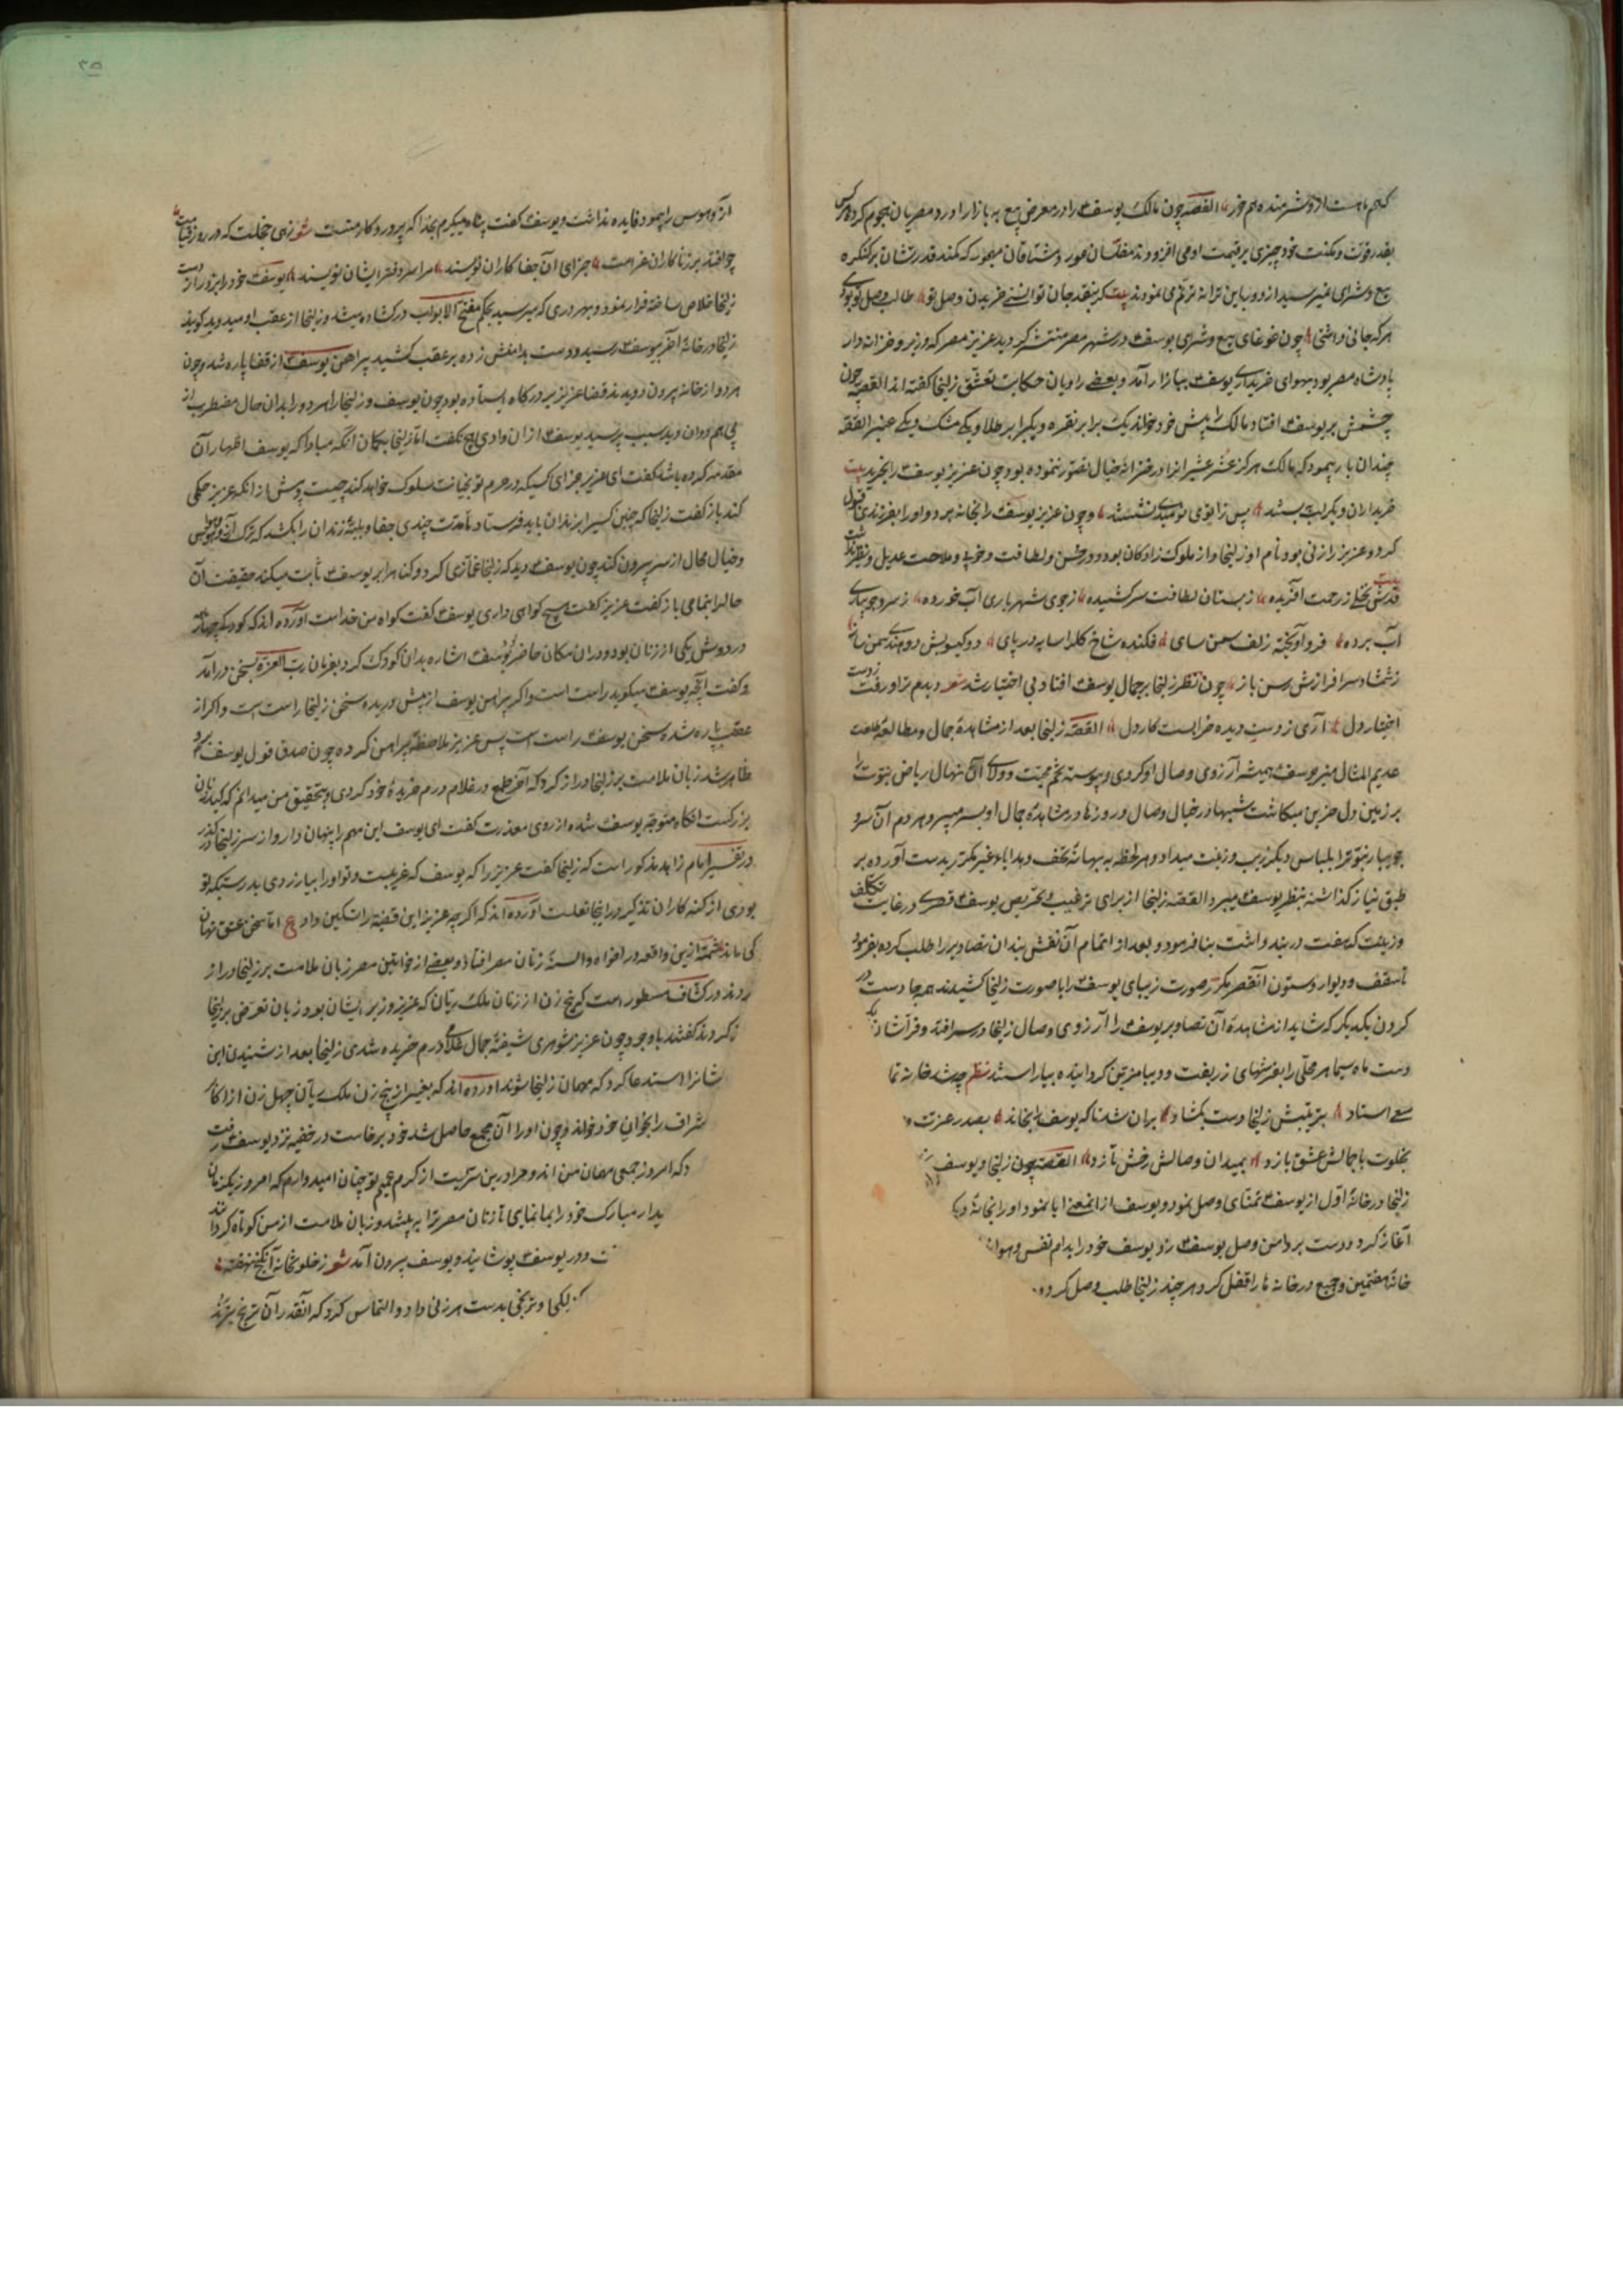 کهم ماهست ازو شرمنده هم خور القصه چون مالک یوسف را در معرض بیع به بازار آورد مصریان هجوم کرده هرکس
بقدر قوت و مکنت خود چیزی بر قیمت او می افزودند مفلسان عور و مشتاقان مهجور که کمند قدرتشان بر کنکره
بیع و شرای نمیرسید از دور باین ترانه ترنم می نمودند بیت کر بنقد جان توانستی خریدن وصل تو طالب وصل تو بودی
هر که جانی داشتی چون غوغای بیع و شرای یوسف در شهر مصر منتشر کردید عزیز مصر که وزیر و خزانه دار
پادشاه مصر بود بهوای خریداری یوسف ببازار آمد و بعضی راویان حکایت تعشق زلیخا کفته اند القصه چون
چشمش بر یوسف افتاد مالک را پیش خود خواند یک برابر نقره و یکبرابر طلا و یکی مشک و یکی عنبر القصه
چندان بار پیمود که مالک هرگز عشر عشیر انرا در خزانهٔ خیال تصور ننموده بود و چون عزیز یوسف را بخرید بیت
خریداران دیکر لب ببستند پس زانوی نومیدی نشستند و چون عزیز یوسف را بخانه برد و او را بفرزندی قبول
کرد و عزیز را زنی بود نام او زلیخا و از ملوک زادکان بود و در حسن و لطافت و خوبی و ملاحت عدیل و نظیر نداشت
بیت قدش نخلی ز رحمت آفریده ز بستان لطافت سر کشیده ز جوی شهریاری آب خورده ز سرو جویباری
آب برده فرو آویخته زلف سمن سای فکنده شاخ کل را سایه در پای دو کیسویش دو هندوی رسن ساز
ز شمشاد سرافرازش رسن باز چون نظر زلیخا بر جمال یوسف افتاد بی اختیار شد شعر دیدم ترا و رفت ز دست
اختیار دل آری ز دست دیده خرابست کار دل القصه زلیخا بعد از مشاهدهٔ جمال و مطالعهٔ طلعت
عدیم المثال منیر یوسف همیشه آرزوی وصال او کردی و پیوسته تخم محبت و ولای آن نهال ریاض نبوت را
بر زمین دل حزین میکاشت شبها در خیال وصال و روزها در مشاهدهٔ جمال او بسر میبرد و هر دم آن سرو
جویبار نبوت را بلباس دیکر زیب و زینت میداد و هر لحظه به بهانهٔ تحف و هدایاء غیر مکرر بدست آورده بر
طبق نیاز کذاشته بنظر یوسف میبرد القصه زلیخا از برای ترغیب و تحریص یوسف قصری در غایت تکلف
و زینت که هفت در بند داشت بنا فرمود و بعد از اتمام آن نقش بندان تصاویر را طلب کرده بفرمود
تا سقف و دیوار و ستون آنقصر مکرر صورت زیبای یوسف را با صورت زلیخا کشیدند همه جا دست در
کردن یکدیکر که شاید از مشاهدهٔ آن تصاویر یوسف را آرزوی وصال زلیخا در سر افتد و فراشان
دست ماه سیما هر محلی را بفرشهای زربفت و دیبا مزین کردانیده بیاراستند نظم چو شد خانه تما
سعی استاد بتزیینش زلیخا دست بکشاد بران شد تا که یوسف را بخواند بصدر عزت
بخلوت با جمالش عشق بازد بمیدان وصالش رخش تازد القصه چون زلیخا و یوسف
زلیخا در خانهٔ اول از یوسف تمنای وصل نمود و یوسف از انمعنی ابا نمود او را بخانهٔ دیک
آغاز کرد و دست بر دامن وصل یوسف زد یوسف خود را بدام نفس و هوا ند
خانهٔ هفتمین و جمیع در خانه ها را قفل کرد هر چند زلیخا طلب وصل کرد و
۳۵
از آو هوس را پیمود فایده نداشت و یوسف کفت پناه میکیرم بخدا که پروردکار منست شعر زهی خجلت که در روز قیامت
چو افتد بر زنا کاران غرامت جزای آن جفا کاران نویسند مرا سر دفتر ایشان نویسند یوسف خود را بزور از دست
زلیخا خلاص ساخته فرار نمود و بهر دری که میرسید بحکم مفتح الابواب در کشاده میشد و زلیخا از عقب او میدوید کویند
زلیخا در خانهٔ آخر بیوسف رسید و دست بدامنش زده بر عقب کشید پیراهن یوسف از قفا پاره شد و چون
هر دو از خانه بیرون دویدند قضا عزیز بر درکاه ایستاده بود چون یوسف و زلیخا را هر دو را بدان حال مضطرب از
پی هم دوان دید سبب پرسید یوسف از ان وادی هیچ نکفت اما زلیخا بکمان آنکه مبادا که یوسف اظهار آن
مقدمه کرده باشد کفت ای عزیز جزای کسیکه در حرم تو بخیانت سلوک خواهد کند چیست و پیش از انکه عزیز حکمی
کند باز کفت زلیخا که چنین کسیرا بزندان باید فرستاد تا مدت چندی جفا و بلیهٔ زندان را بکشد که ترک آز و هوس
و خیال محال از سر بیرون کند چون یوسف دید که زلیخا غمازی کرد و کناه را بر یوسف ثابت میکند حقیقت آن
حال را بتمامی باز کفت عزیز کفت هیچ کواهی داری یوسف کفت کواه من خداست آورده اند که کودکی چهار ماهه
در دوش یکی از زنان بود و در ان مکان حاضر یوسف اشاره بدان کودک کرد بفرمان رب العزه بسخن در آمد
و کفت آنچه یوسف میکوید راست است و اکر پیراهن یوسف از پیش دریده سخن زلیخا راست است و اکر از
عقب پاره شده سخن یوسف راست است پس عزیز ملاحظهٔ پیراهن کرده چون صدق قول یوسف برو
ظاهر شد زبان ملامت بر زلیخا دراز کرد که آخر طمع در غلام درم خریدهٔ خود کردی و بتحقیق من میدانم که کید زنان
بزرکست انکاه متوجه یوسف شده از روی معذرت کفت ای یوسف این مهم را پنهان دار و از سر زلیخا در کذر
و در تفسیر امام زاهد مذکور است که زلیخا کفت عزیز را که یوسف که غریبست و تو او را بیازردی بدرستیکه تو
بودی از کنه کاران تذکیر در اینجا تغلیب آورده اند که اکرچه عزیز این قضیه را تسکین داد ع اما سخن عشق نهان
کی ماند شمهٔ ازین واقعه در افواه و السنهٔ زنان مصر افتاد و بعضی از خواتین مصر زبان ملامت بر زلیخا دراز
ردند در کشاف مسطور است که پنج زن از زنان ملک ریان که عزیز وزیر ایشان بود زبان تعرض بر زلیخا
ز کردند کفتند با وجود چون عزیز شوهری شیفتهٔ جمال غلامی درم خریده شدی زلیخا بعد از شنیدن این
شانرا استدعا کرد که مهمان زلیخا شوند آورده اند که بغیر از پنج زن ملک ریان چهل زن از اکابر
شراف را بخوان خود خواند و چون او را آن مجمع حاصل شد خود برخاست و در خفیه نزد یوسف رفت
دکه امروز جمعی مهمان من اند و مرا درین سرآیت از کرم عمیم تو چنان امیدوارم که امروز یکزمان
یدار مبارک خود را بما بنمایی تا زنان مصر ترا به بینند و زبان ملامت از من کوتاه کردانند
ت و در یوسف پوشانید و یوسف بیرون آمد شعر ز خلوتخانه آن کنج نهفته
زلکی و ترنجی بدست هر زنی داد و التماس کرد که آنقدر آن ترنج ببرند